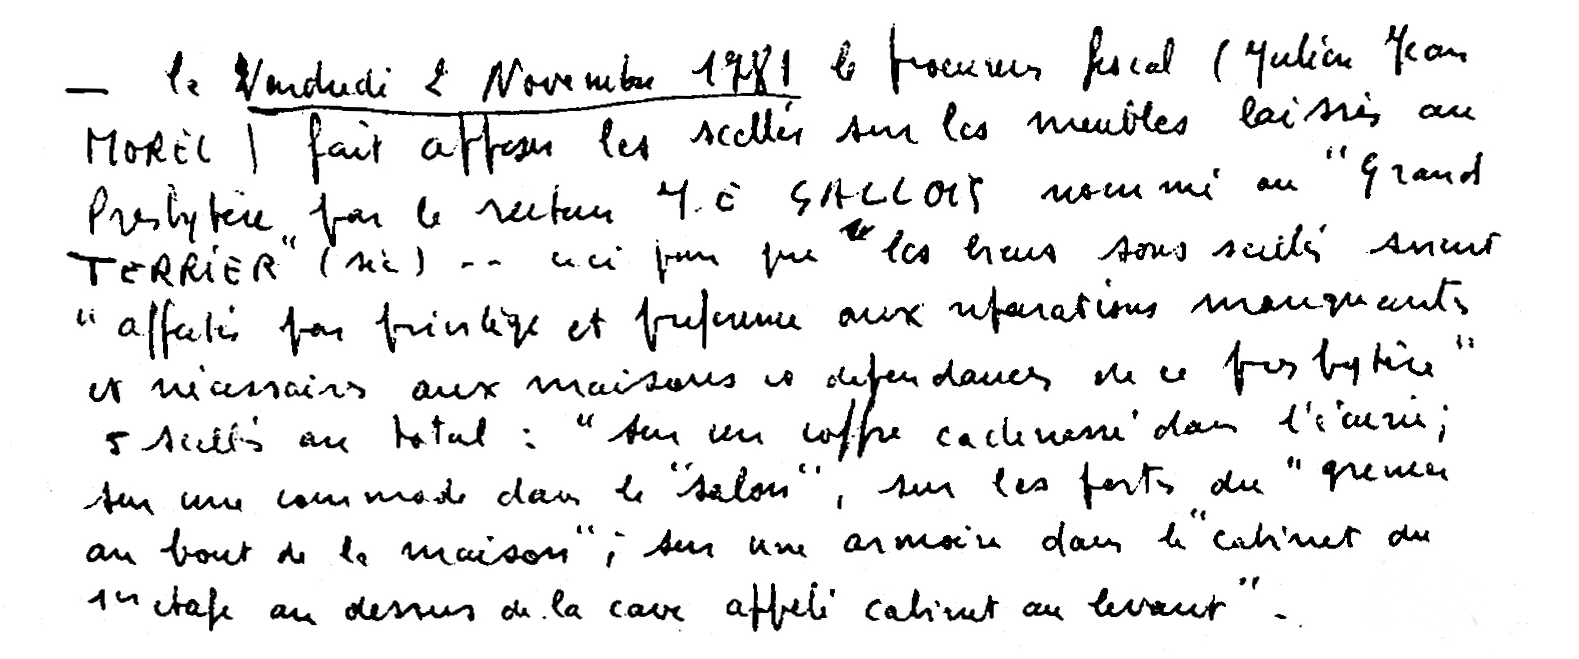 — le Vendredi 2 Novembre 1781 le procureur fiscal (Julien Jean
MOREL) fait apposer les scellés sur les meubles laissés au
Presbytère par le recteur J. E GALLOIS nommé au "Grand
TERRIER" (sic) -- ceci pour que "les biens sous scellés soient
"affectés par privilège et préférence aux réparations manquants
et nécessaires aux maisons et dépendances de ce presbytère"
5 scellés au total : "sur un coffre cadenassé dans l'écurie ;
sur une commode dans le "salon", sur les portes du "grenier
au bout de la maison" ; sur une armoire dans le "cabinet du
1er étage au dessus de la cave appelé cabinet au levant".